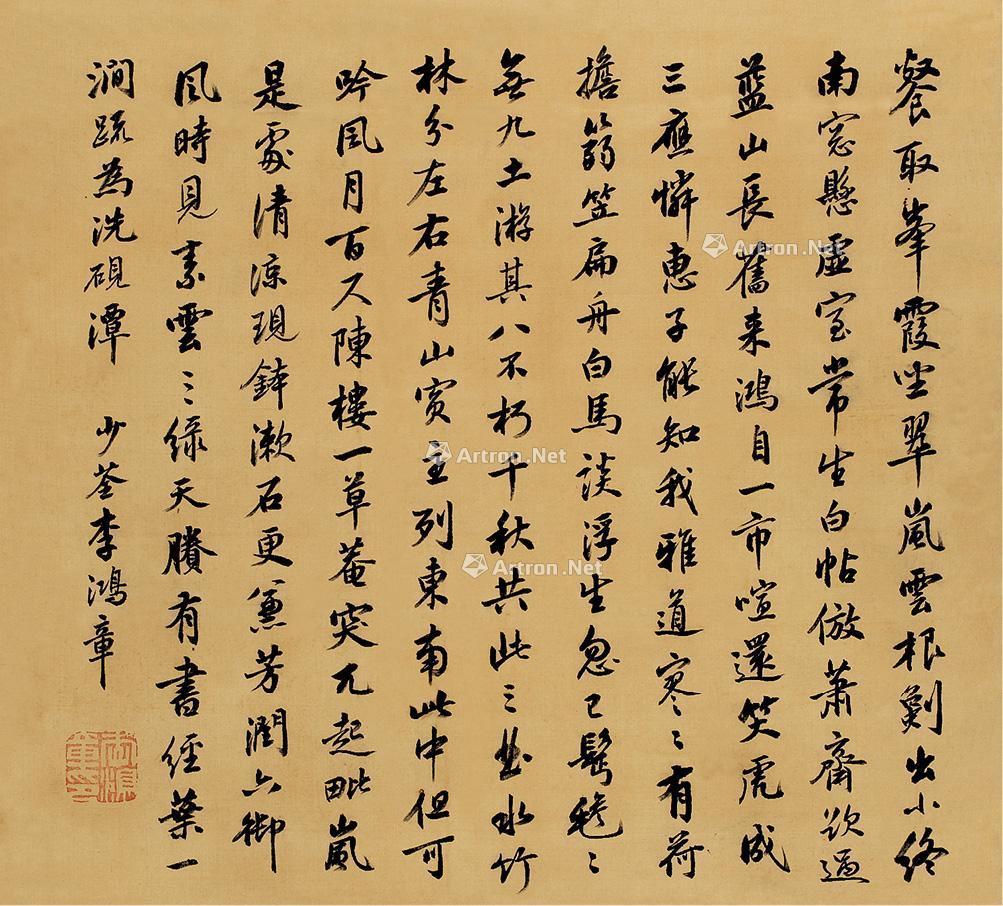 餐取峯霞坐翠嵐雲根劚出小終
南窓懸虛室常生白帖倣蕭齋欲過
藍山長舊来鴻自一市喧還笑虎成
三應憐惠子能知我雅道寒〻有荷
擔篛笠扁舟白馬談浮生忽已鬢毿〻
無九土游其八不朽千秋共此三並水竹
林分左右青山賓主列東南此中但可
吟風月百尺陳樓一草菴突兀起毗嵐
是處清涼現鉢漱石更兼芳潤六御
風時見素雲〻綠天賸有書經葉一
澗疏為洗硯潭 少荃李鴻章
Artron.Net
Artron.Net
Artron.Net